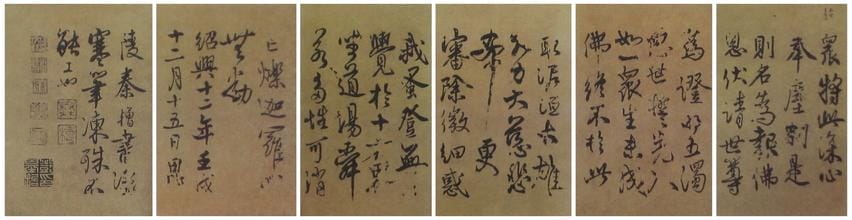 眾將此深心
奉塵剎是
則名為報佛
恩伏請世尊
為證明五濁
惡世誓先入
如一眾生未成
佛終不於此
取泥洹大雄
大力大慈悲
希更
審除微細惑
我蚤登無上
覺於十方界
坐道場舜
若多性可消
亡爍迦羅心
無動
紹興十二年壬戌
十二月十五日
僧書
寒筆凍殊不
能工